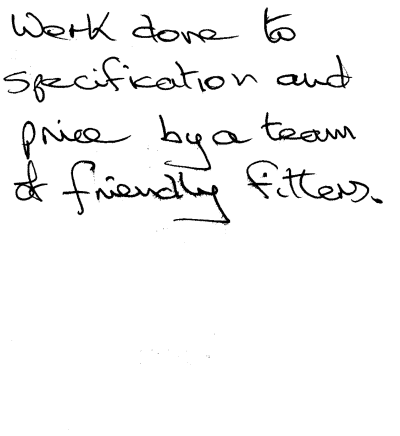 Work done to
specification and
price by a team
of friendly fitters.